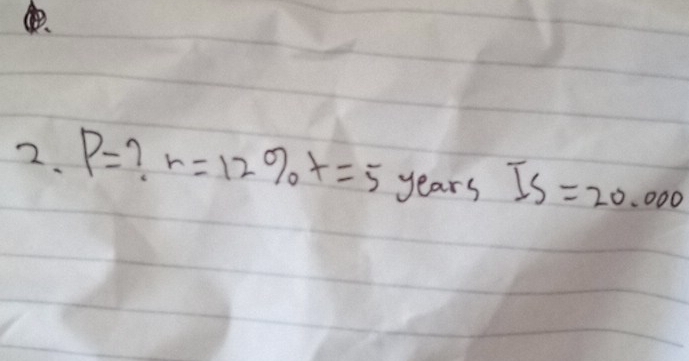 2. P=? r=12% t=5 years Is=20.000